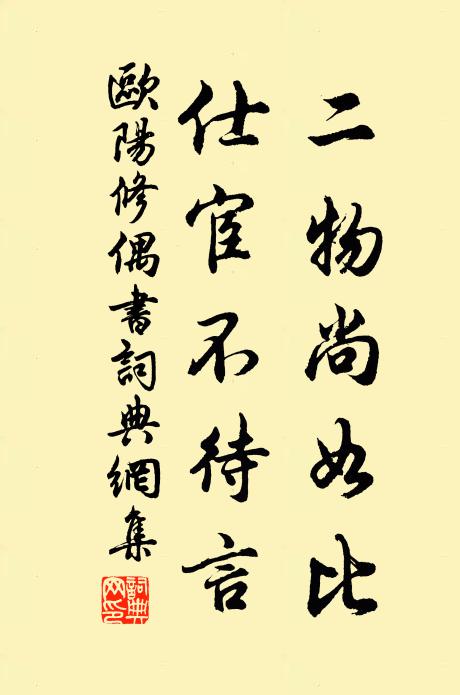 二物尚如此
仕宦不待言
歐陽修偶書詞典網集
詞典
网印